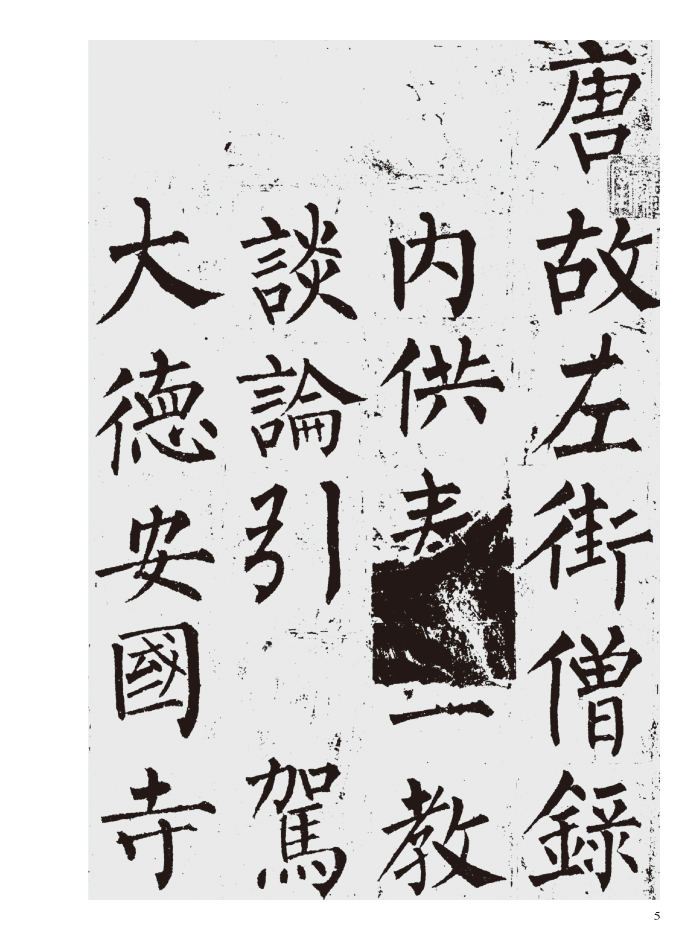 唐故左街僧錄
内供教
談論引駕
大徳安國寺
5